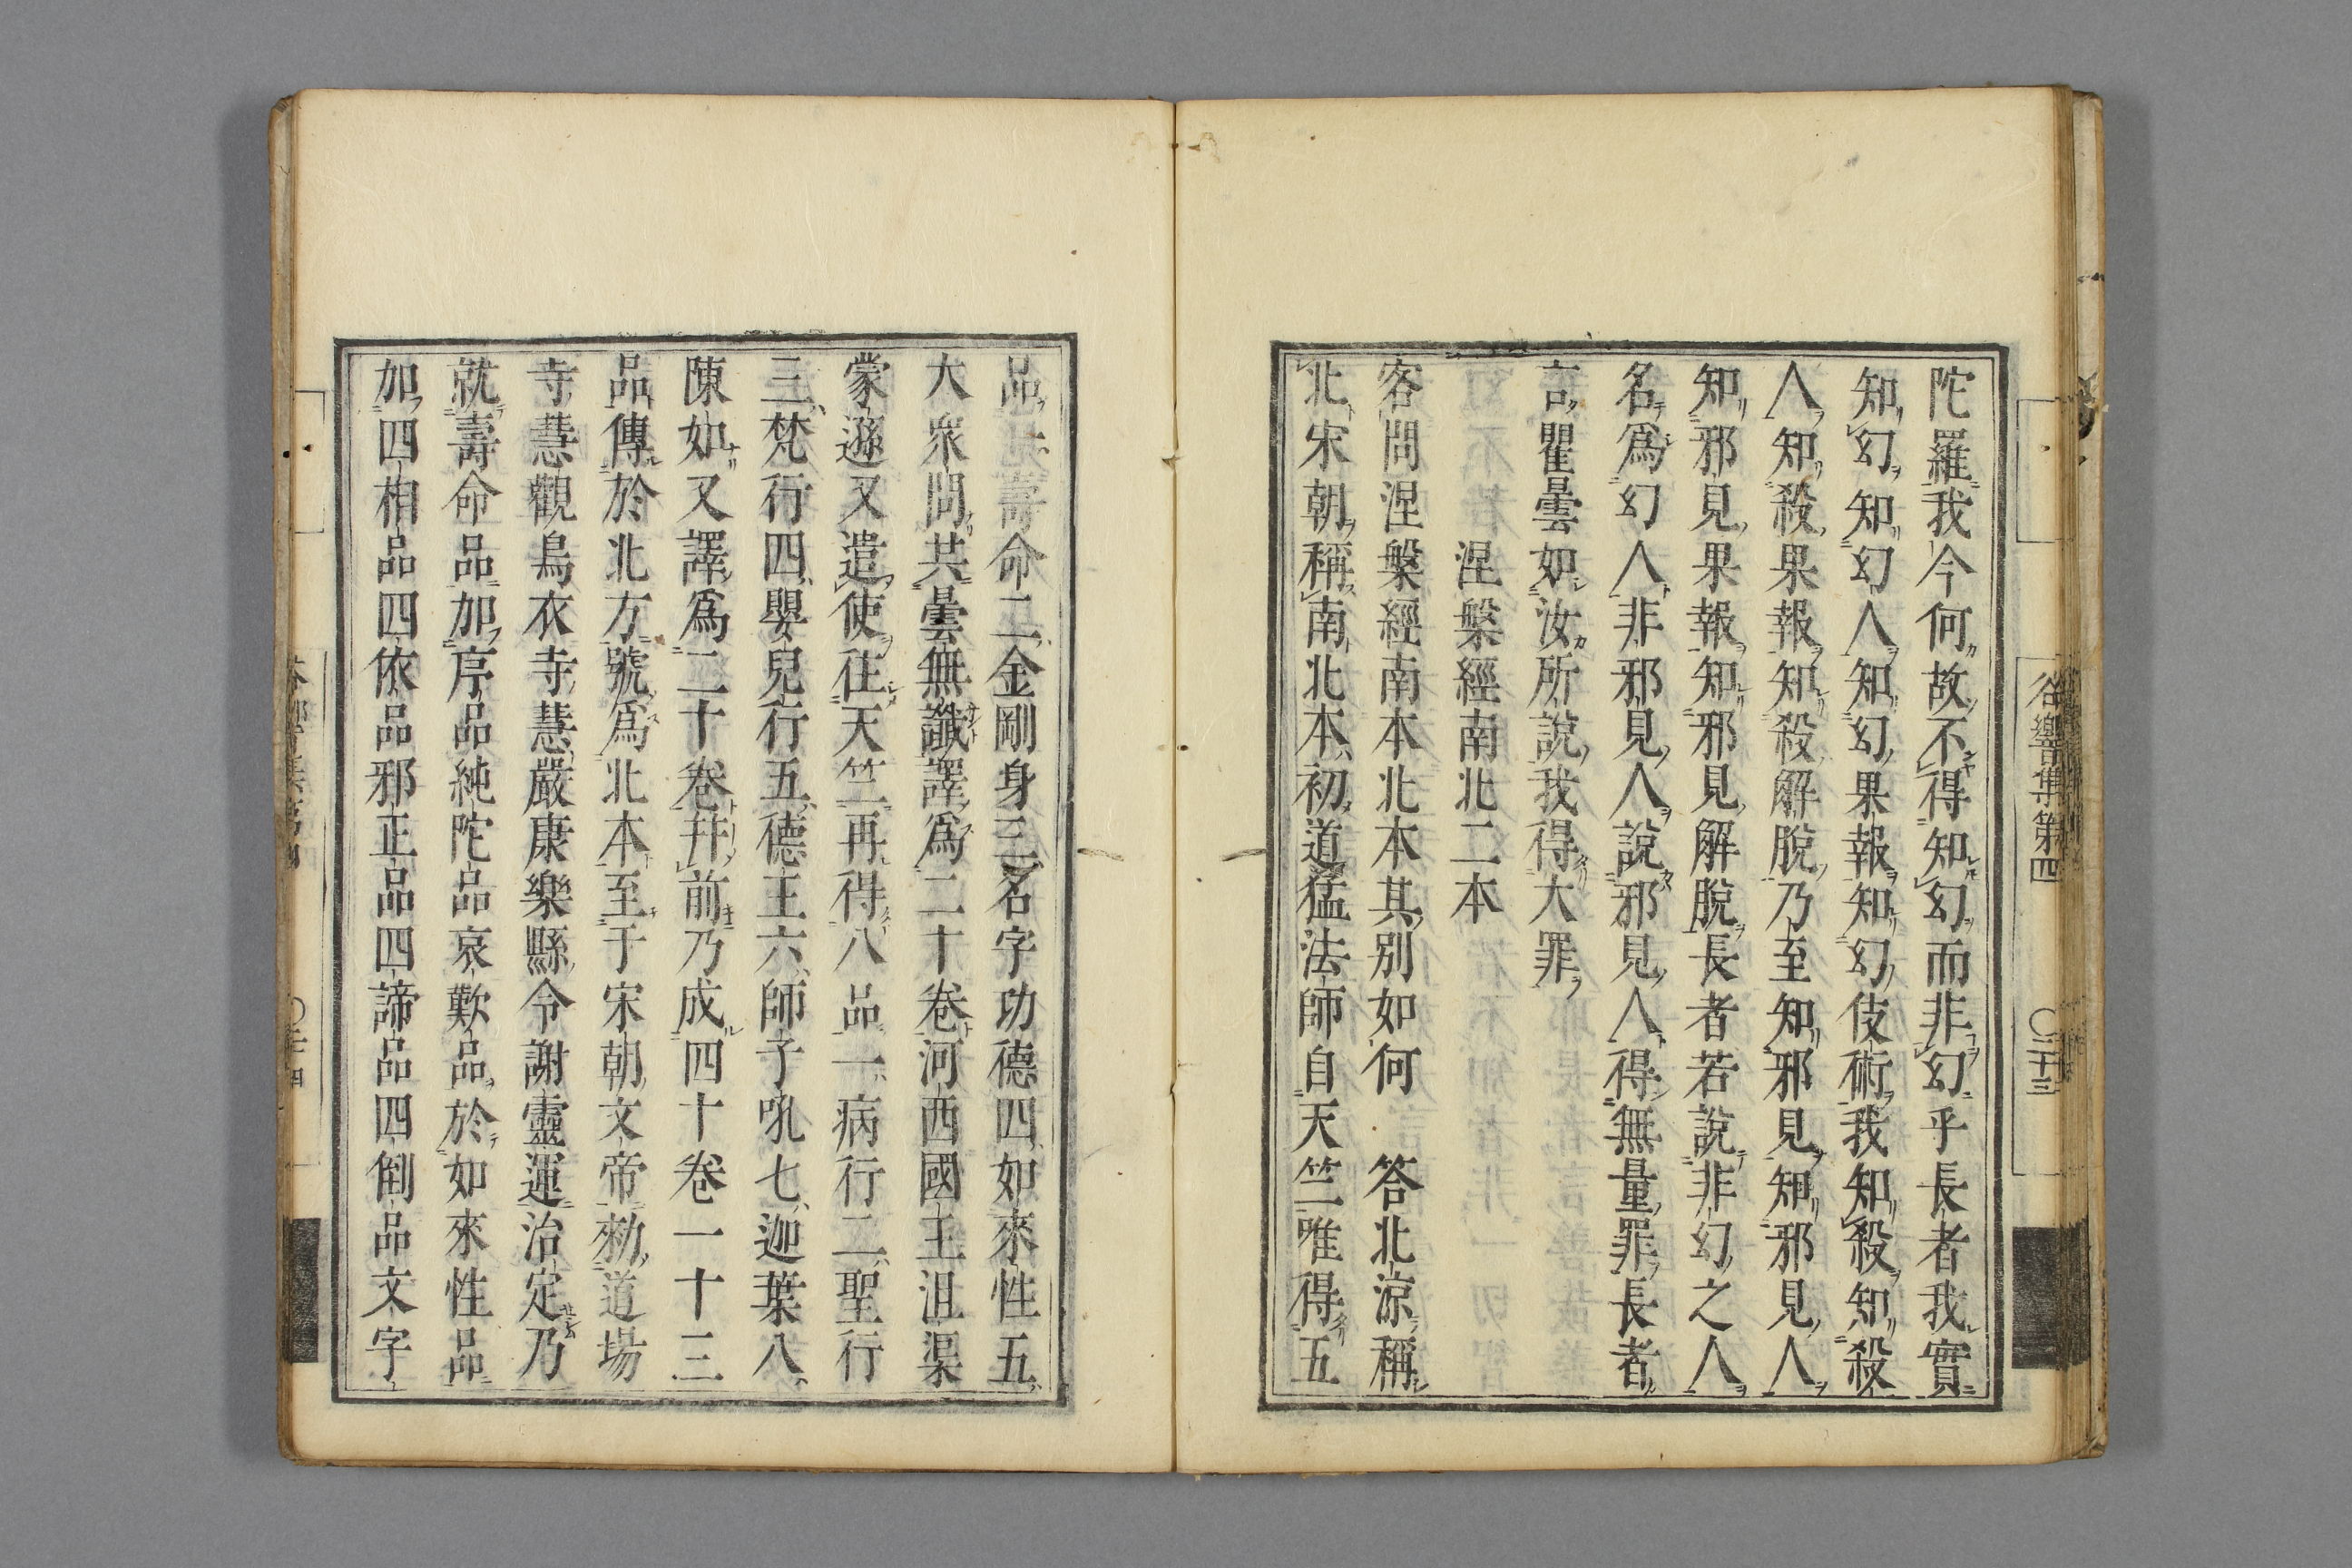 陀羅我今何故不得知幻而非幻乎長者我實
知幻知幻人知幻果報知幻伎術我知殺知殺
人知殺果報知殺解脫乃至知邪見知邪見人
知邪見果報知邪見解脫長者若說非幻之人
名爲幻人非邪見人說邪見人得無量罪長者
言瞿曇如汝所說我得大罪
涅槃經南北二本
客問涅槃經南本北本其別如何　答北涼稱
北宋朝稱南北本初道猛法師自天竺唯得五
谷響集第四
〇二十三
品一壽命二金剛身三名字功德四如來性五
大衆問其曇無讖譯爲二十卷河西國王沮渠
蒙遜又遣使往天竺再得八品一病行二聖行
三梵行四嬰兒行五德王六師子吼七迦葉八
陳如又譯爲二十卷幷前乃成四十卷一十三
品傳於北方號爲北本至于宋朝文帝勅道場
寺慧觀烏衣寺慧嚴康樂縣令謝靈運治定乃
就壽命品加序品純陀品哀歎品於如來性品
加四相品四依品邪正品四諦品四倒品文字